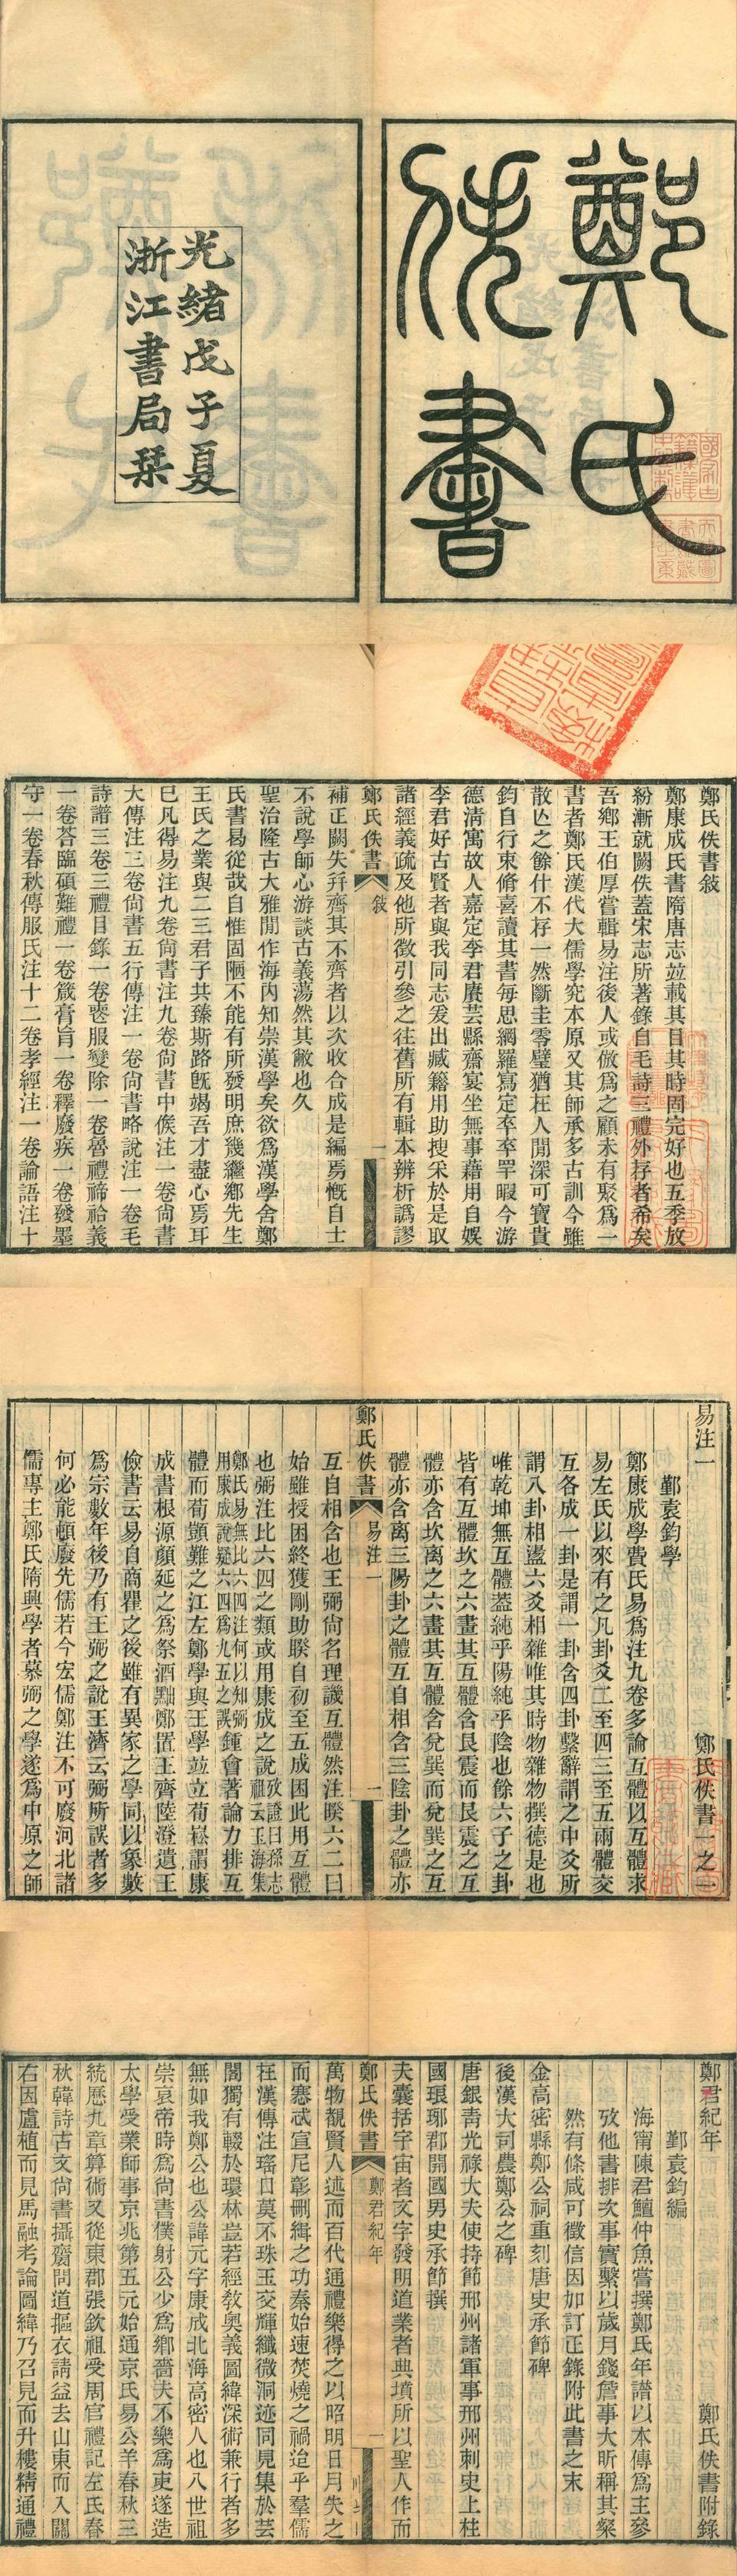 鄭氏
佚書
光緒戊子夏
浙江書局栞
鄭氏佚書敍
鄭康成氏書隋唐志竝載其目其時固完好也五季放
紛漸就闕佚蓋宋志所著錄自毛詩三禮外存者希矣
吾鄉王伯厚嘗輯易注後人或倣爲之顧未有聚爲一
書者鄭氏漢代大儒學究本原又其師承多古訓今雖
散亾之餘什不存一然斷圭零璧猶在人閒深可寶貴
鈞自行束脩喜讀其書每思網羅寫定卒卒罕暇今游
德淸寓故人嘉定李君賡芸縣齋宴坐無事藉用自娛
李君好古賢者與我同志爰出臧籍用助搜采於是取
諸經義疏及他所徵引參之往舊所有輯本辨析譌謬
鄭氏佚書 敍 一
補正闕失幷齊其不齊者以次收合成是編焉慨自士
不說學師心游談古義蕩然其敝也久
聖治隆古大雅閒作海內知崇漢學矣欲爲漢學舍鄭
氏書曷從哉自惟固陋不能有所發明庶幾繼鄉先生
王氏之業與二三君子共臻斯路旣竭吾才盡心焉耳
已凡得易注九卷尙書注九卷尙書中候注一卷尙書
大傳注三卷尙書五行傳注一卷尙書略說注一卷毛
詩譜三卷三禮目錄一卷喪服變除一卷魯禮禘祫義
一卷荅臨碩難禮一卷箴膏肓一卷釋廢疾一卷發墨
守一卷春秋傳服氏注十二卷孝經注一卷論語注十
易注一 鄭氏佚書一之一
鄞袁鈞學
鄭康成學費氏易爲注九卷多論互體以互體求
易左氏以來有之凡卦爻二至四三至五兩體交
互各成一卦是謂一卦含四卦繫辭謂之中爻所
謂八卦相盪六爻相雜唯其時物雜物撰德是也
唯乾坤無互體蓋純乎陽純乎陰也餘六子之卦
皆有互體坎之六畫其互體含艮震而艮震之互
體亦含坎離之六畫其互體含兌巽而兌巽之互
體亦含离三陽卦之體互自相含三陰卦之體亦
鄭氏佚書 易注一 一
互自相含也王弼尙名理譏互體然注睽六二曰
始雖授困終獲剛助睽自初至五成困此用互體
也弼注比六四之類或用康成之說攷證曰孫志祖云玉海集
鄭氏易無比六四注何以知弼用康成說疑六四爲九五之誤鍾會著論力排互
體而荀顗難之江左鄭學與王學竝立荀崧謂康
成書根源顏延之爲祭酒黜鄭置王齊陸澄遺王
儉書云易自商瞿之後雖有異家之學同以象數
爲宗數年後乃有王弼之說王濟云弼所誤者多
何必能頓廢先儒若今宏儒鄭注不可廢河北諸
儒專主鄭氏隋興學者慕弼之學遂爲中原之師
鄭君紀年 鄭氏佚書附錄
鄞袁鈞編
海甯陳君鱣仲魚嘗撰鄭氏年譜以本傳爲主參
攷他書排次事實繫以歲月錢詹事大昕稱其粲
然有條咸可徵信因加訂正錄附此書之末
金高密縣鄭公祠重刻唐史承節碑
後漢大司農鄭公之碑
唐銀靑光祿大夫使持節邢州諸軍事邢州刺史上柱
國琅邪郡開國男史承節撰
夫囊括宇宙者文字發明道業者典墳所以聖人作而
鄭氏佚書 鄭君紀年 一
萬物覩賢人述而百代通禮樂得之以昭明日月失之
而塞忒宣尼彰刪緝之功秦始速焚燒之禍迨乎羣儒
在漢傳注瑤日莫不珠玉交輝纖微洞迹同見集於芸
閣獨有輟於環林豈若經敎奧義圖緯深術兼行者多
無如我鄭公也公諱元字康成北海高密人也八世祖
崇哀帝時爲尙書僕射公少爲鄉嗇夫不樂爲吏遂造
太學受業師事京兆第五元始通京氏易公羊春秋三
統歷九章算術又從東郡張欽祖受周官禮記左氏春
秋韓詩古文尙書攝齋問道摳衣請益去山東而入關
右因盧植而見馬融考論圖緯乃召見而升樓精通禮